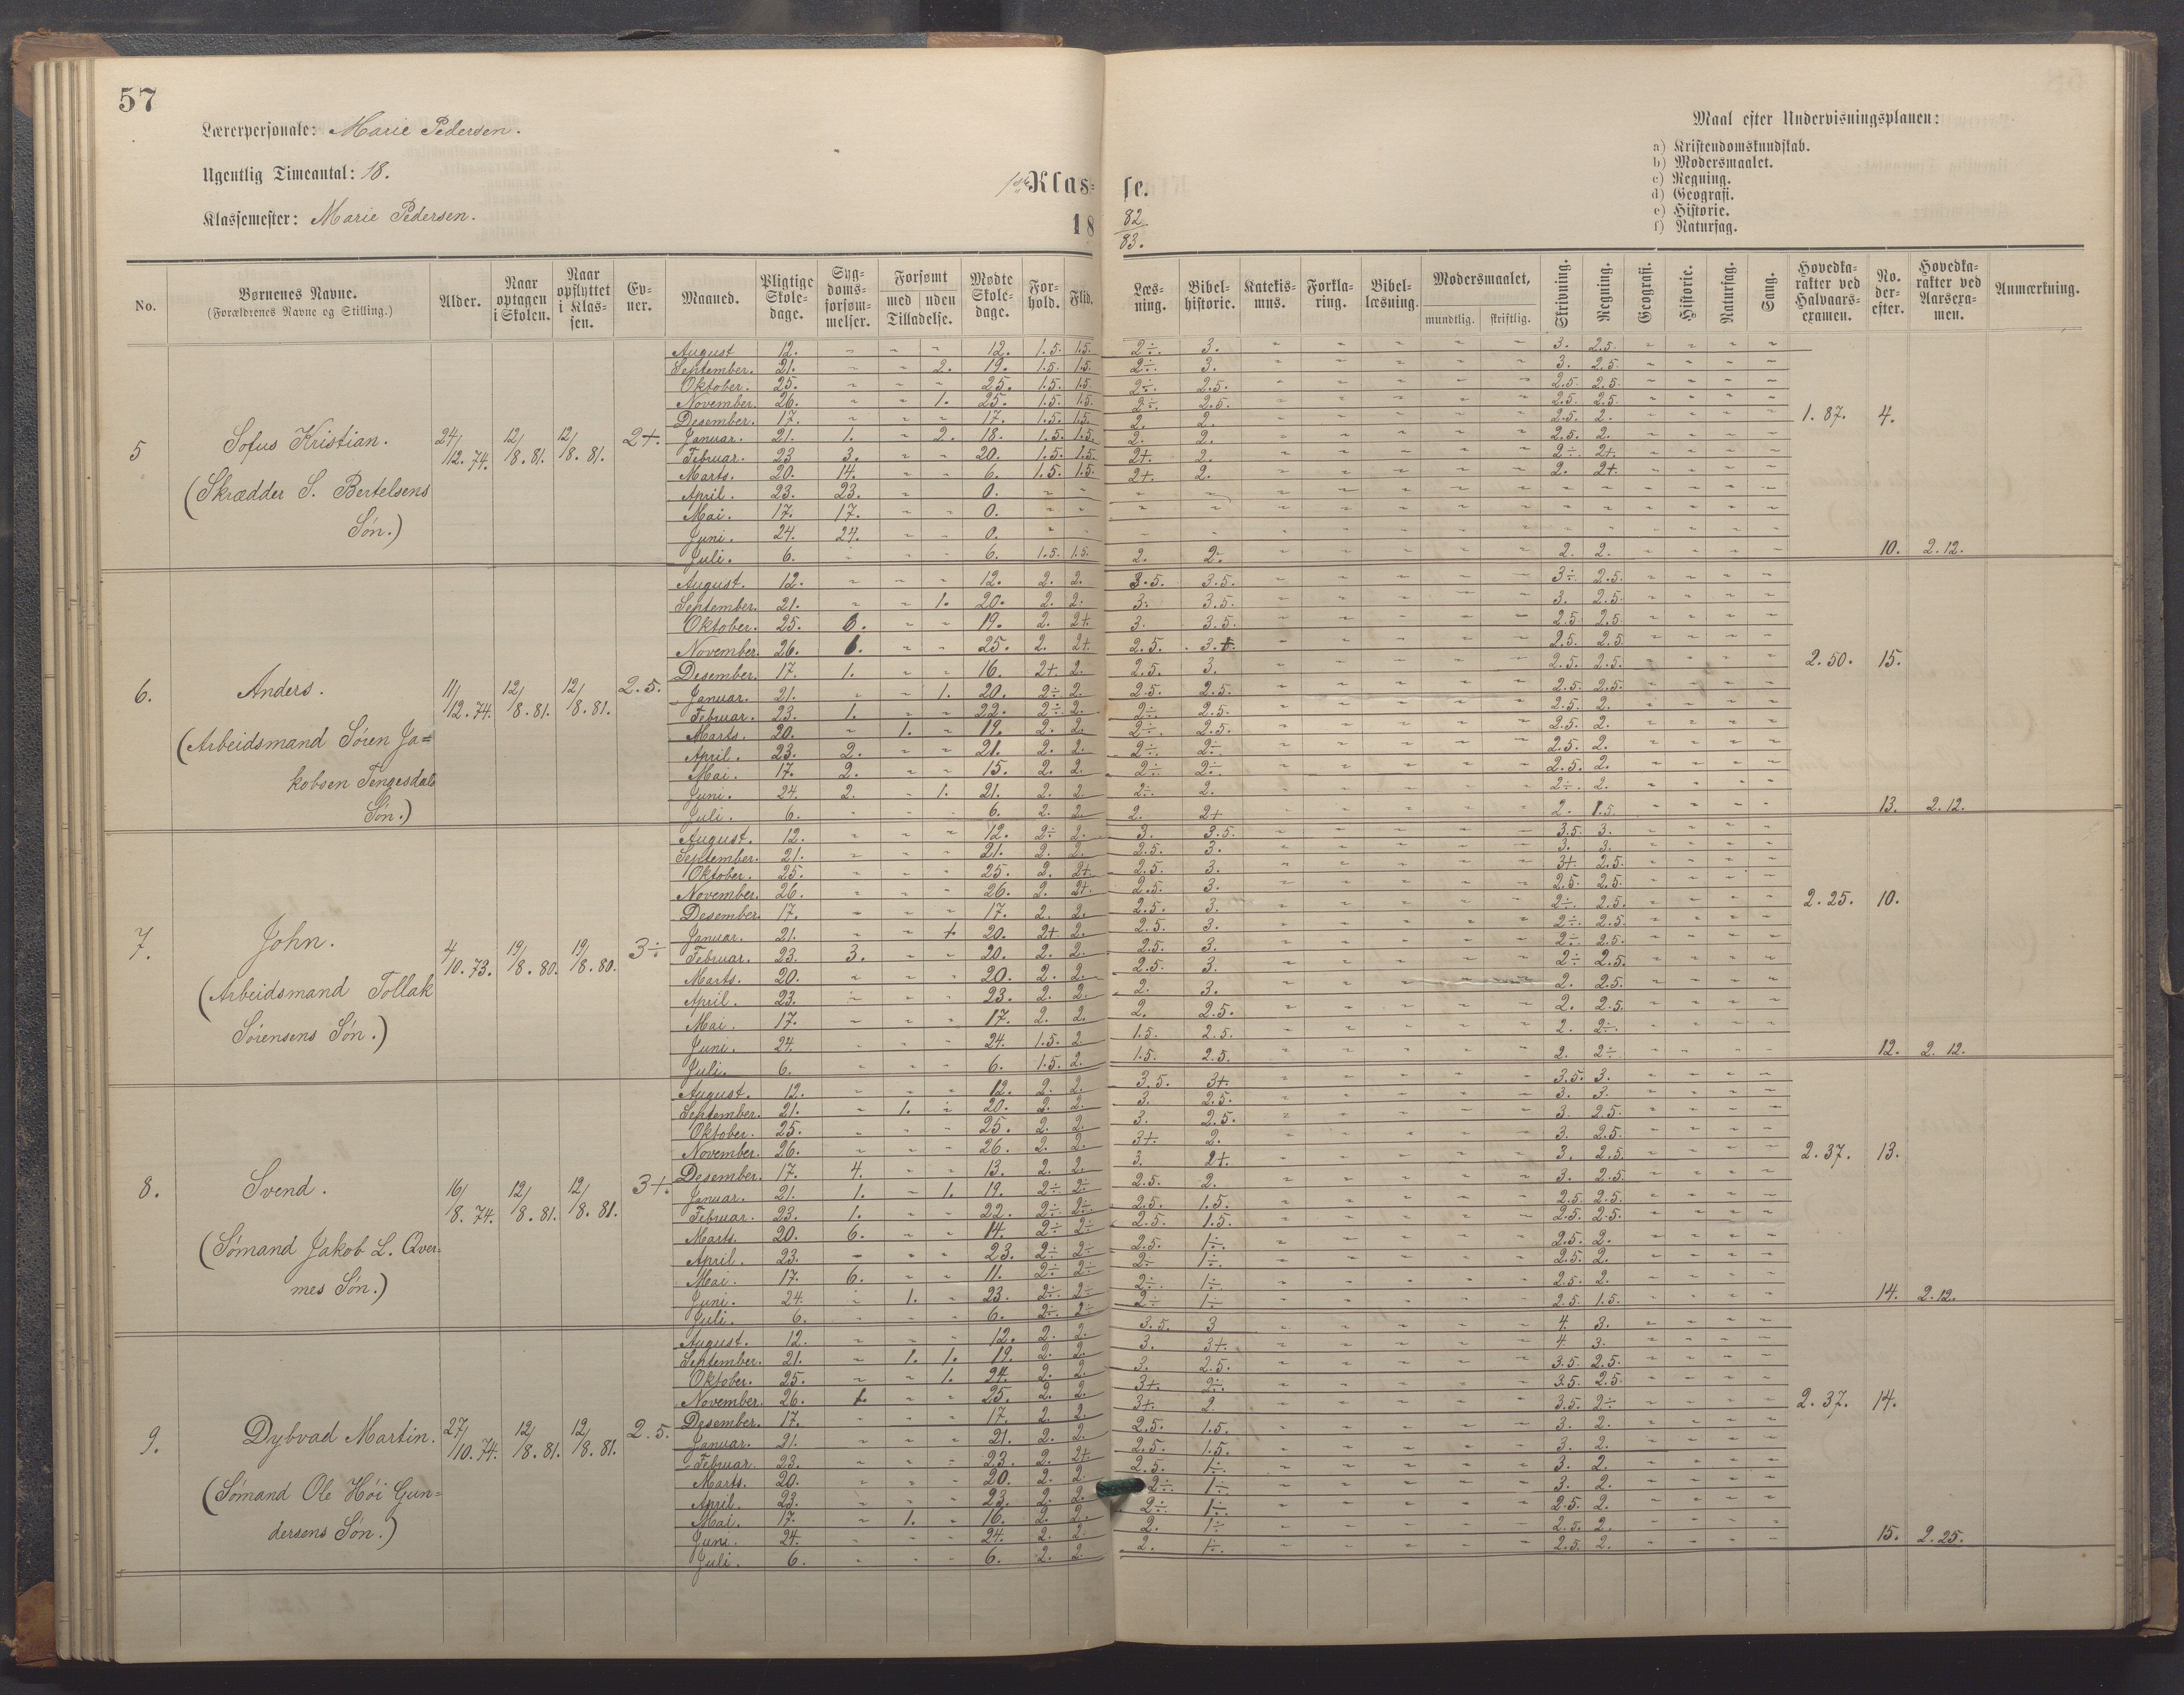 57
Lærerpersonale: Marie Pedersen.
Ugentlig Timeantal: 18.
Klassemester: Marie Pedersen.
1ste Klasse.
18 82/83.
Maal efter Undervisningsplanen:
a) Kristendomskundskab.
b) Modersmaalet.
c) Regning.
d) Geografi.
e) Historie.
f) Naturfag.
No. | Børnenes Navne. (Forældrenes Navne og Stilling.) | Alder. | Naar optagen i Skolen. | Naar opflyttet i Klassen. | Evner. | Maaned. | Pligtige Skoledage. | Sygdomsforsømmelser. | Forsømt med Tilladelse. | uden | Mødte Skoledage. | Forhold. | Flid. | Læsning. | Bibelhistorie. | Katekismus. | Forklaring. | Bibellæsning. | Modersmaalet, mundtlig. | skriftlig. | Skrivning. | Regning. | Geografi. | Historie. | Naturfag. | Sang. | Hovedkarakter ved Halvaarsexamen. | No. derefter. | Hovedkarakter ved Aarsexamen. | Anmærkning.
5 Sofus Kristian. 24/12.74. 12/8.81. 12/8.81. 2+. 1.87. 4.
(Skrædder S. Bertelsens
Søn.)
August 12. - - - 12. 1.5. 1.5. 2÷. 3. - - - - - 3. 2.5. - - - -
September. 21. - - 2. 19. 1.5. 1.5. 2÷. 3. - - - - - 3. 2.5. - - - -
Oktober. 25. - - - 25. 1.5. 1.5. 2÷. 2.5. - - - - - 2.5. 2.5. - - - -
November. 26. - - 1. 25. 1.5. 1.5. 2÷. 2.5. - - - - - 2.5. 2.5. - - - -
Desember. 17. - - - 17. 1.5. 1.5. 2. 2. - - - - - 2.5. 2. - - - -
Januar. 21. 1. - 2. 18. 1.5. 1.5. 2. 2. - - - - - 2.5. 2. - - - -
Februar. 23 3. - - 20. 1.5. 1.5. 2+. 2. - - - - - 2÷. 2+. - - - -
Marts. 20. 14. - - 6. 1.5. 1.5. 2+. 2. - - - - - 2. 2+. - - - -
April. 23. 23. - 0. - - - - - - - - - - - - - - -
Mai. 17. 17. - - 0. - - - - - - - - - - - - - - -
Juni. 24. 24. - - 0. - - - - - - - - - - - - - - -
Juli. 6. - - - 6. 1.5. 1.5. 2. 2. - - - - - 2. 2. - - - - 10. 2.12.
6. Anders. 11/12.74. 12/8.81. 12/8.81. 2.5. 2.50. 15.
(Arbeidsmand Sören Ja=
kobsen Tengesdals
Søn.)
August. 12. - - - 12. 2. 2. 3.5. 3.5. - - - - - 3÷. 2.5. - - - -
September. 21. - - 1. 20. 2. 2. 3. 3.5. - - - - - 3. 2.5. - - - -
Oktober. 25. 6. - - 19. 2. 2+. 3. 3.5. - - - - - 2.5. 2.5. - - - -
November. 26. 1. - - 25. 2. 2+. 2.5. 3.+. - - - - - 2.5. 2.5. - - - -
Desember. 17. 1. - - 16. 2+. 2. 2.5. 3. - - - - - 2.5. 2.5. - - - -
Januar. 21. - - 1. 20. 2÷. 2. 2.5. 2.5. - - - - - 2.5. 2.5. - - - -
Februar. 23. 1. - - 22. 2÷. 2. 2÷. 2.5. - - - - - 2.5. 2. - - - -
Marts. 20. - 1. - 19. 2. 2. 2÷. 2.5. - - - - - 2.5. 2. - - - -
April. 23. 2. - - 21. 2. 2. 2÷. 2÷. - - - - - 2.5. 2. - - - -
Mai. 17. 2. - - 15. 2. 2. 2÷. 2÷. - - - - - 2.5. 2. - - - -
Juni. 24. 2. - 1. 21. 2. 2 2÷. 2. - - - - - 2÷. 2. - - - -
Juli. 6. - - - 6. 2. 2. 2. 2+ - - - - - 2. 1.5. - - - - 13. 2.12.
7. John. 4/10.73. 19/8.80. 19/8.80. 3÷ 2.25. 10.
(Arbeidsmand Tollak
Sörensens Søn.)
August. 12. - - - 12. 2÷ 2. 3. 3.5. - - - - - 3.5. 3. - - - -
September. 21. - - - 21. 2. 2. 2.5. 3. - - - - - 3. 3. - - - -
Oktober. 25. - - - 25. 2. 2+. 2.5. 3. - - - - - 3+. 2.5. - - - -
November. 26. - - - 26. 2. 2+. 2.5. 3. - - - - - 2.5. 2.5. - - - -
Desember. 17. - - - 17. 2. 2. 2.5. 3. - - - - - 2÷. 2.5. - - - -
Januar. 21. - - 1. 20. 2+ 2. 2.5. 3. - - - - - 2÷. 2.5. - - - -
Februar. 23. 3. - - 20. 2. 2. 2.5. 3. - - - - - 2÷. 2.5. - - - -
Marts. 20. - - - 20. 2. 2. 2.5. 3. - - - - - 2÷ 2.5. - - - -
April. 23. - - - 23. 2. 2. 2. 3. - - - - - 2. 2.5. - - - -
Mai. 17. - - - 17. 2. 2. 2. 2.5. - - - - - 2. 2.5. - - - -
Juni. 24. - - - 24. 1.5. 2 1.5. 2.5. - - - - - 2. 2÷. - - - -
Juli. 6. - - - 6. 1.5. 2. 1.5. 2.5. - - - - - 2. 2÷ - - - - 12. 2.12.
8. Svend. 16/8.74. 12/8.81. 12/8.81. 3+. 2.37. 13.
(Sømand Jakob L. Qver=
mes Søn.)
August. 12. - - - 12. 2. 2. 3.5. 3+. - - - - - 3.5. 3. - - - -
September. 21. - 1. - 20. 2. 2. 3. 2.5. - - - - - 3. 3. - - - -
Oktober. 25. - - - 25. 2. 2. 3. 2.5. - - - - - 3. 2.5. - - - -
November. 26. - - - 26. 2. 2. 3+. 2. - - - - - 3. 2.5. - - - -
Desember. 17. 4. - - 13. 2. 2. 3. 2+. - - - - - 3. 2.5. - - - -
Januar. 21. 1. - 1. 19. 2÷. 2÷ 2.5. 2. - - - - - 3. 2.5. - - - -
Februar. 23. 1. - - 22. 2÷. 2÷. 2.5. 1.5. - - - - - 2.5. 2.5. - - - -
Marts. 20. 6. - - 14. 2÷ 2÷ 2.5. 1.5. - - - - - 2.5. 2.5. - - - -
April. 23. - - - 23. 2÷ 2÷ 2.5. 1÷. - - - - - 2.5. 2. - - - -
Mai. 17. 6. - - 11. 2÷ 2÷ 2÷ 1÷. - - - - - 2.5. 2. - - - -
Juni. 24. - 1. - 23. 2÷. 2÷ 2÷. 1÷ - - - - - 2.5. 2. - - - -
Juli. 6. - - - 6. 2÷. 2÷ 2÷ 1÷ - - - - - 2.5. 1.5. - - - - 14. 2.12.
9. Dybvad Martin. 27/10.74. 12/8.81. 12/8.81. 2.5. 2.37. 14.
(Sømand Ole Höi Gun=
dersens Søn.)
August. 12. - - - 12. 2. 2. 3.5. 3 - - - - - 4. 3. - - - -
September. 21. - 1. 1. 19. 2. 2. 3. 3+. - - - - - 4. 3. - - - -
Oktober. 25. - - 1. 24. 2. 2. 3. 2.5. - - - - - 3.5. 2.5. - - - -
November. 26. 1. - 25. 2. 2. 3+. 2÷. - - - - - 3.5. 2.5. - - - -
Desember. 17. - - - 17. 2. 2. 3+. 2. - - - - - 3.5. 2÷ - - - -
Januar. 21. - - - 21. 2. 2. 2.5. 1.5. - - - - - 3. 2. - - - -
Februar. 23. - - - 23. 2. 2+ 2.5. 1.5. - - - - - 3. 2. - - - -
Marts. 20. - - - 20. 2. 2. 2.5. 1÷ - - - - - 3. 2. - - - -
April. 23. - - - 23. 2. 2. 2÷. 1÷ - - - - - 3. 2. - - - -
Mai. 17. - 1. - 16. 2. 2. 2÷. 1÷. - - - - - 2.5. 2. - - - -
Juni. 24. - - - 24. 2. 2. 2. 1÷ - - - - - 2.5. 2. - - - -
Juli. 6. - - - 6. 2. 2. 2. 1÷. - - - - - 2.5. 2. - - - - 15. 2.25.